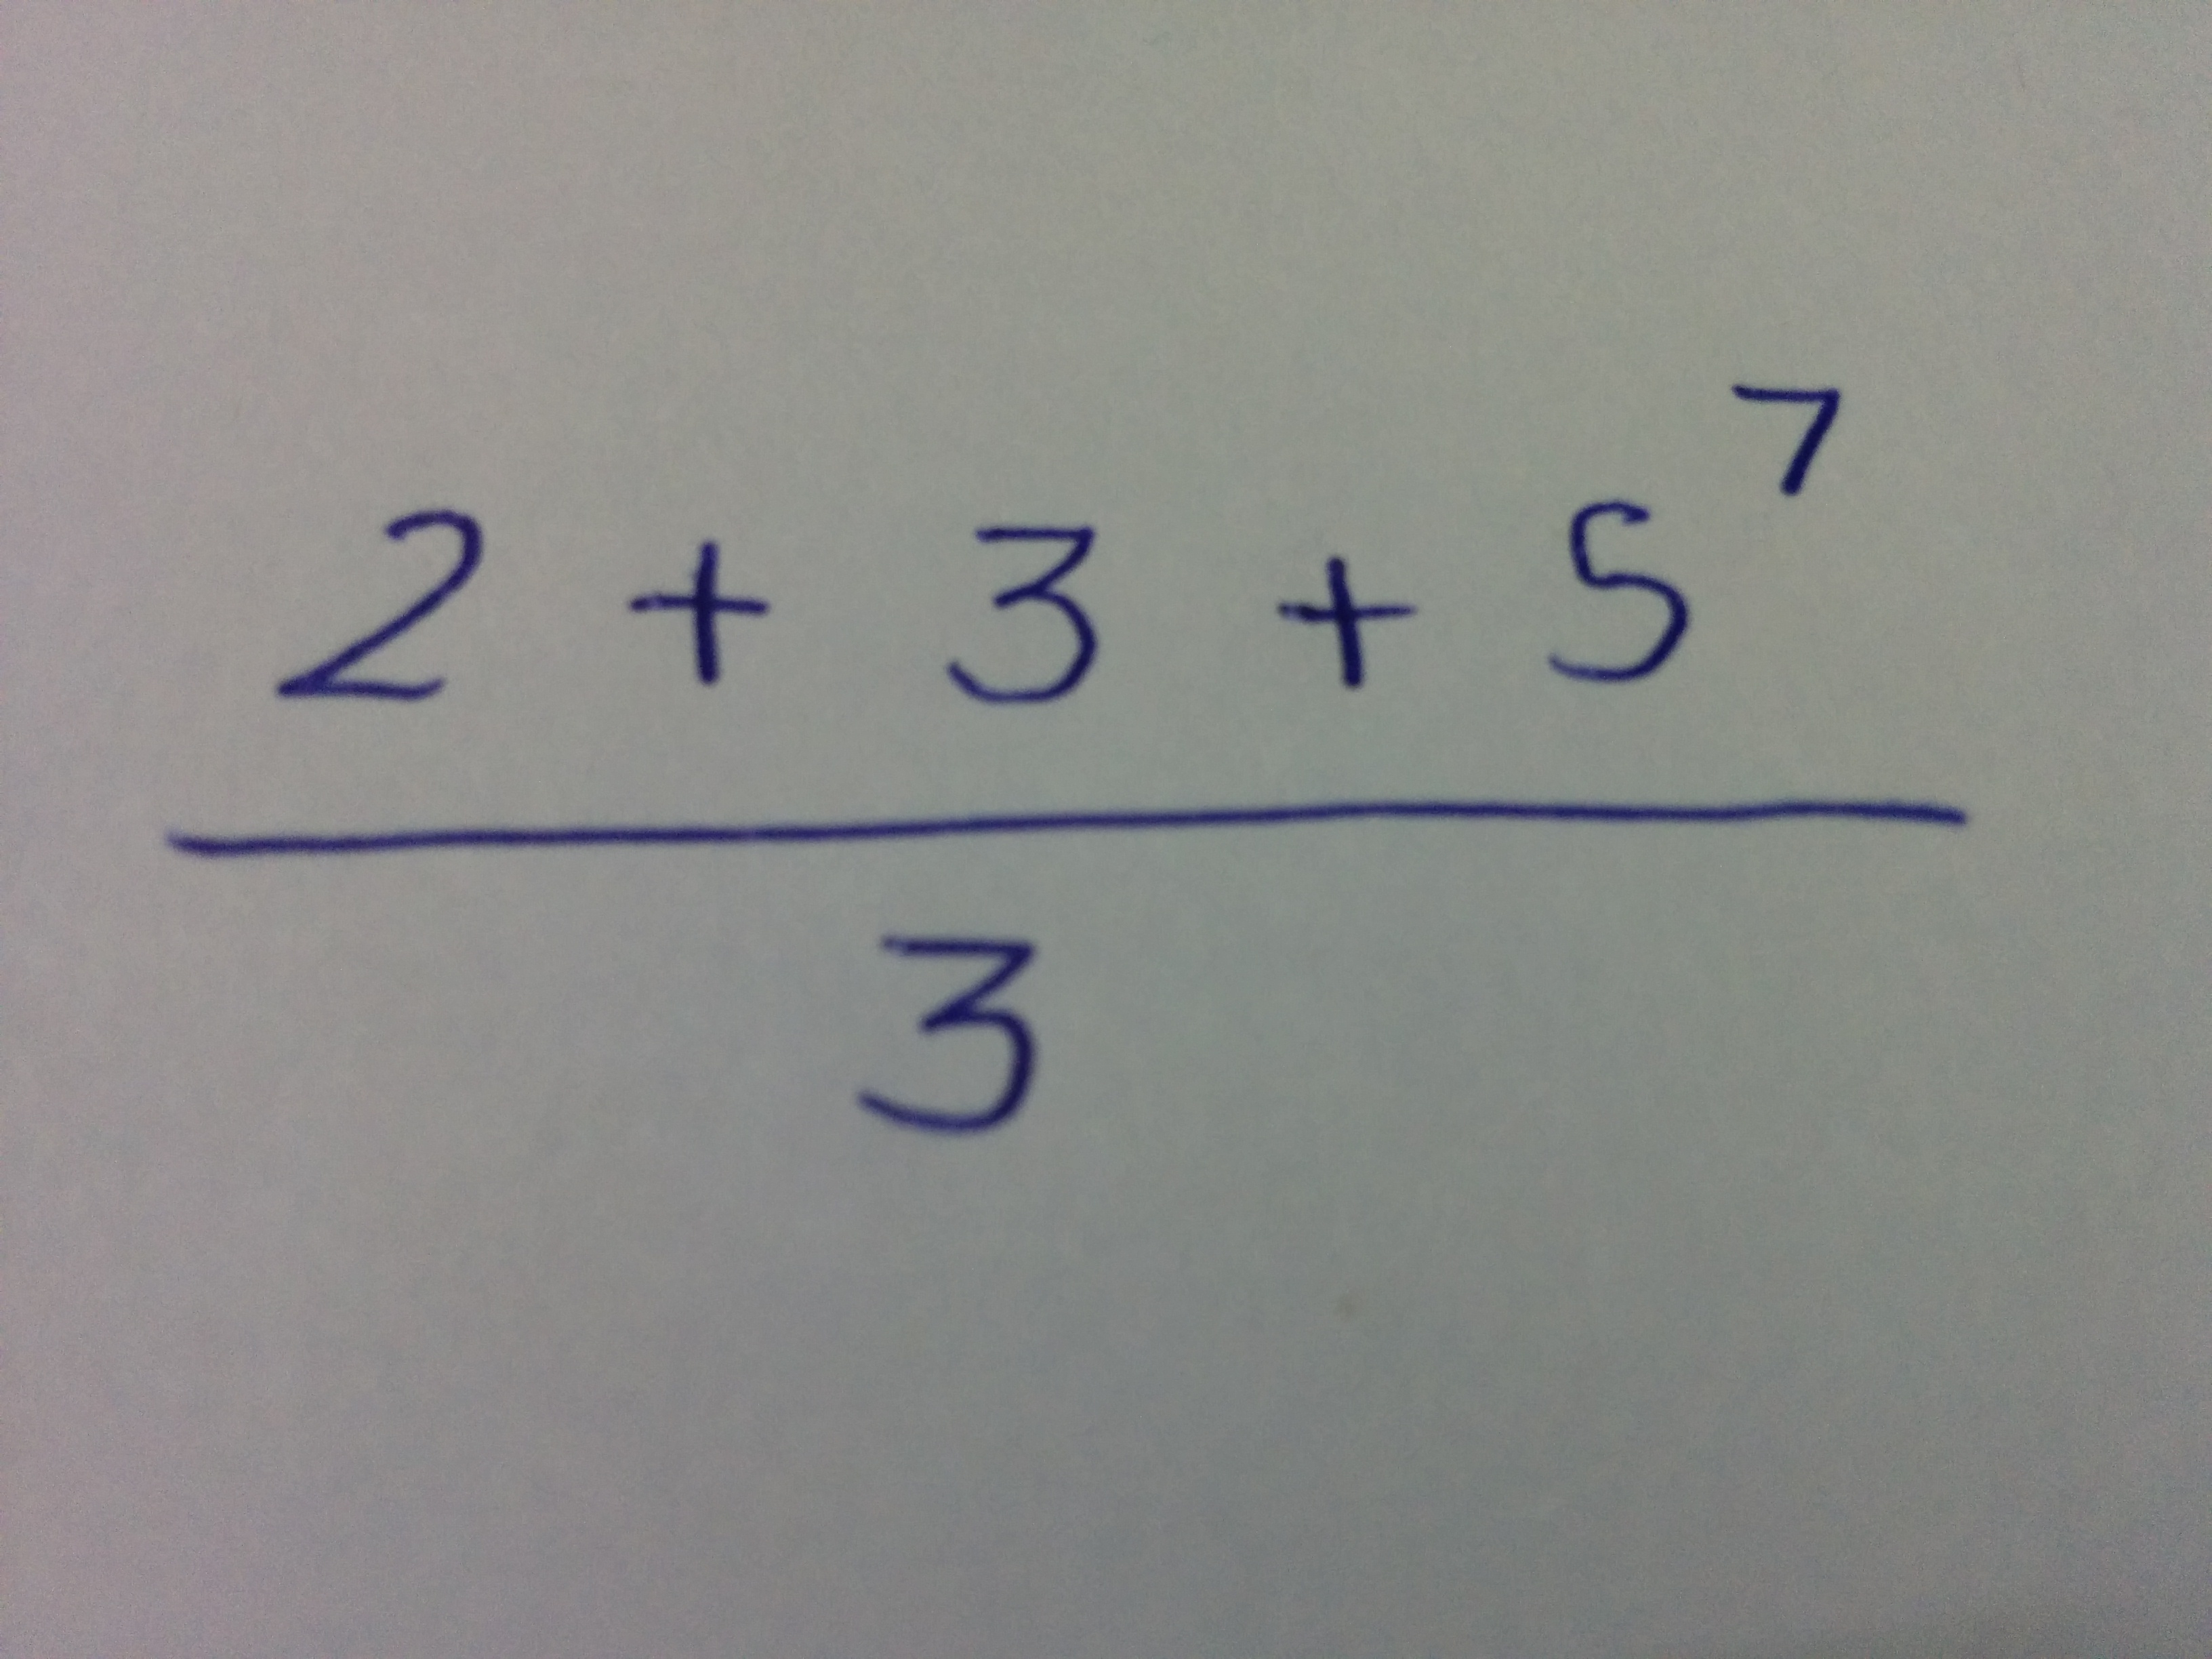 2 + 3 + 5⁷
3